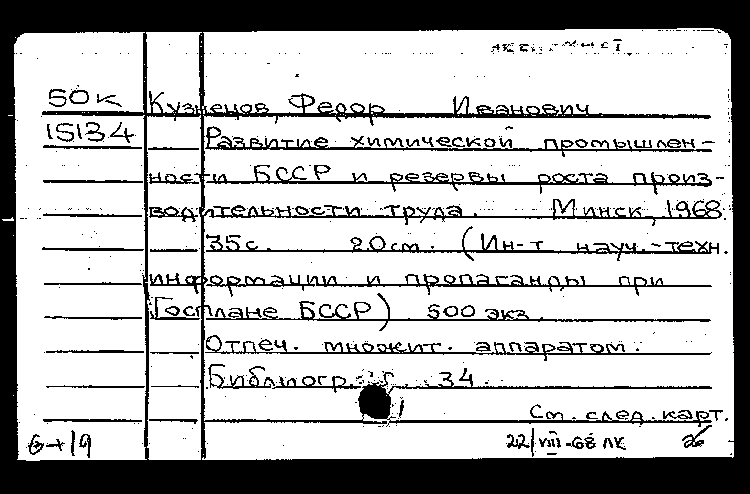 50к Кузнецов, Федор Иванович
15134 Развитие химической промышлен-
ности БССР и резервы роста произ-
водительности труда. Минск, 1968.
35с. 20см. (Ин-т науч.-техн.
информации и пропаганды при
Госплане БССР) 500 экз.
Отпеч. множит. аппаратом.
Библиогр. 34.
См. след. карт.
22/VIII-68 ЛК